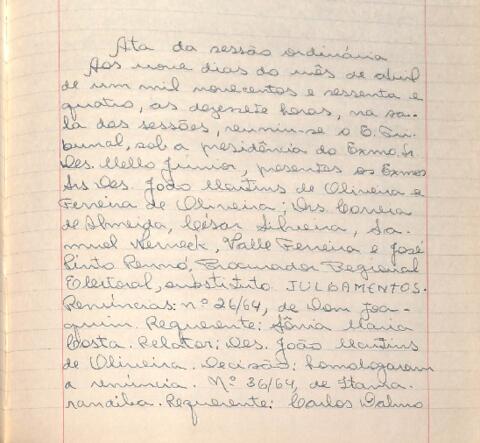 Ata da sessão ordinária
Aos nove dias do mês de abril
de um mil novecentos e sessenta e
quatro, as dezesete horas, na sa-
la das sessões, reuniu-se o E. Tri-
bunal, sob a presidência do Exmo. Sr.
Des. Mello Júnior, presentes os Exmos
Srs Des. João Martins de Oliveira e
Ferreira de Oliveira; Drs. Correia
de Almeida, César Silveira, Sa-
muel Werneck, Valle Ferreira e José
Pinto Renó, Procurador Regional
Eleitoral, substituto. JULGAMENTOS.
Renúncias: nº 26/64, de Dom Joa-
quim. Requerente: Sônia Maria
Costa. Relator: Des. João Martins
de Oliveira. Decisão: homologaram
a renúncia. Nº 36/64, de Itama-
randiba. Requerente: Carlos Dalmo